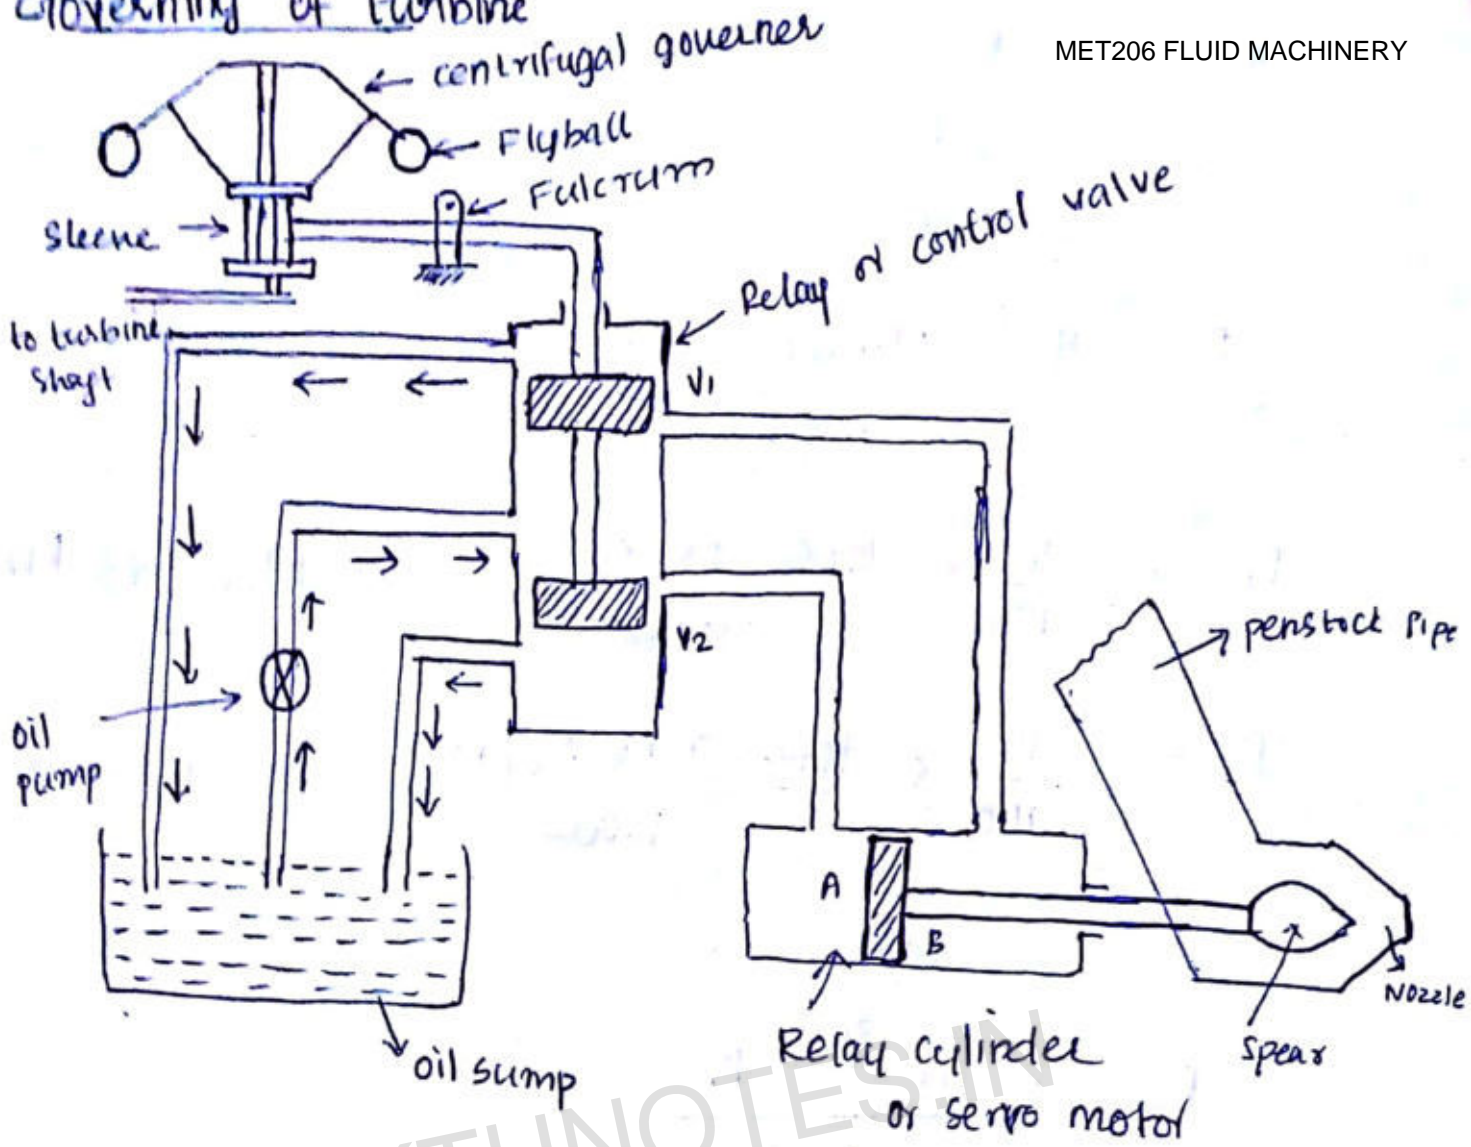 Governing of turbine
MET206 FLUID MACHINERY
centrifugal governer
Flyball
Fulcrum
Sleeve
Relay or control valve
to turbine
shaft
V1
V2
penstock Pipe
oil
pump
A
B
Nozzle
Relay cylinder
or servo motor
spear
oil sump
KTUNOTES.IN